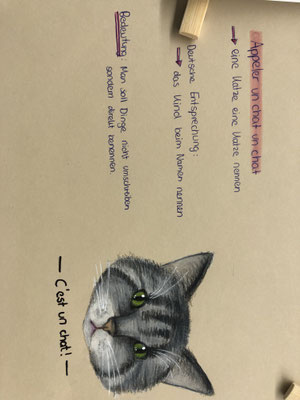 Appeler un chat un chat
→ eine Katze eine Katze nennen
Deutsche Entsprechung:
→ das Kind beim Namen nennen
Bedeutung: Man soll Dinge nicht umschreiben
sondern direkt benennen.
— C'est un chat! —